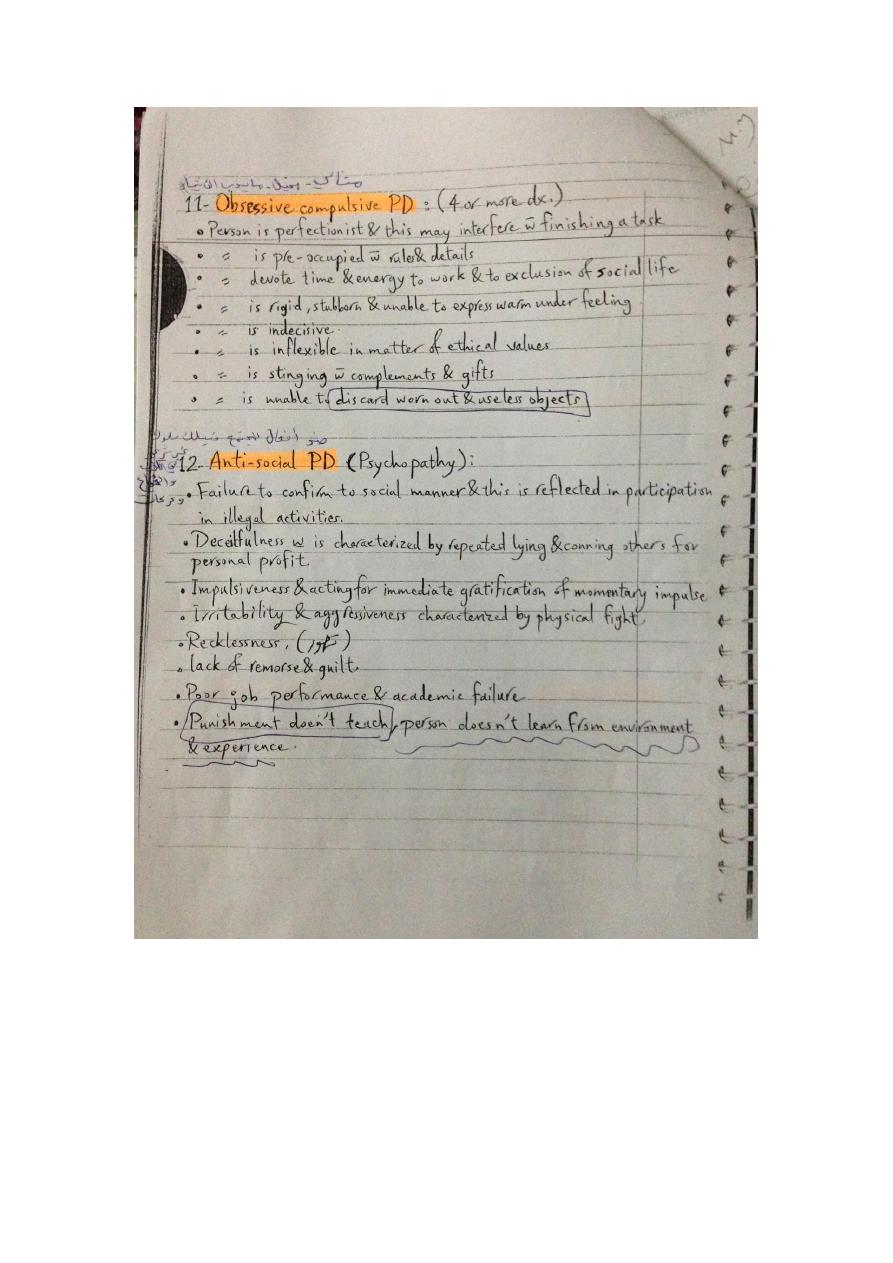 11- Obsessive compulsive PD : (4 or more dx.)
• Person is perfectionist & this may interfere w̄ finishing a task
• = is pre-occupied w̄ rules & details
• = devote time & energy to work & to exclusion of social life
• = is rigid, stubborn & unable to express warm under feeling
• = is indecisive.
• = is inflexible in matter of ethical values
• = is stinging w̄ complements & gifts
• = is unable to discard worn out & useless objects
12- Anti-social PD (Psychopathy):
• Failure to confirm to social manner & this is reflected in participation
in illegal activities.
• Deceitfulness w is characterized by repeated lying & conning others for
personal profit
• Impulsiveness & acting for immediate gratification of momentary impulse
• Irritability & aggressiveness characterized by physical fight
• Recklessness, (تهور)
• lack of remorse & guilt.
• Poor job performance & academic failure
• Punishment doen't teach, person doesn't learn from environment
& experience.